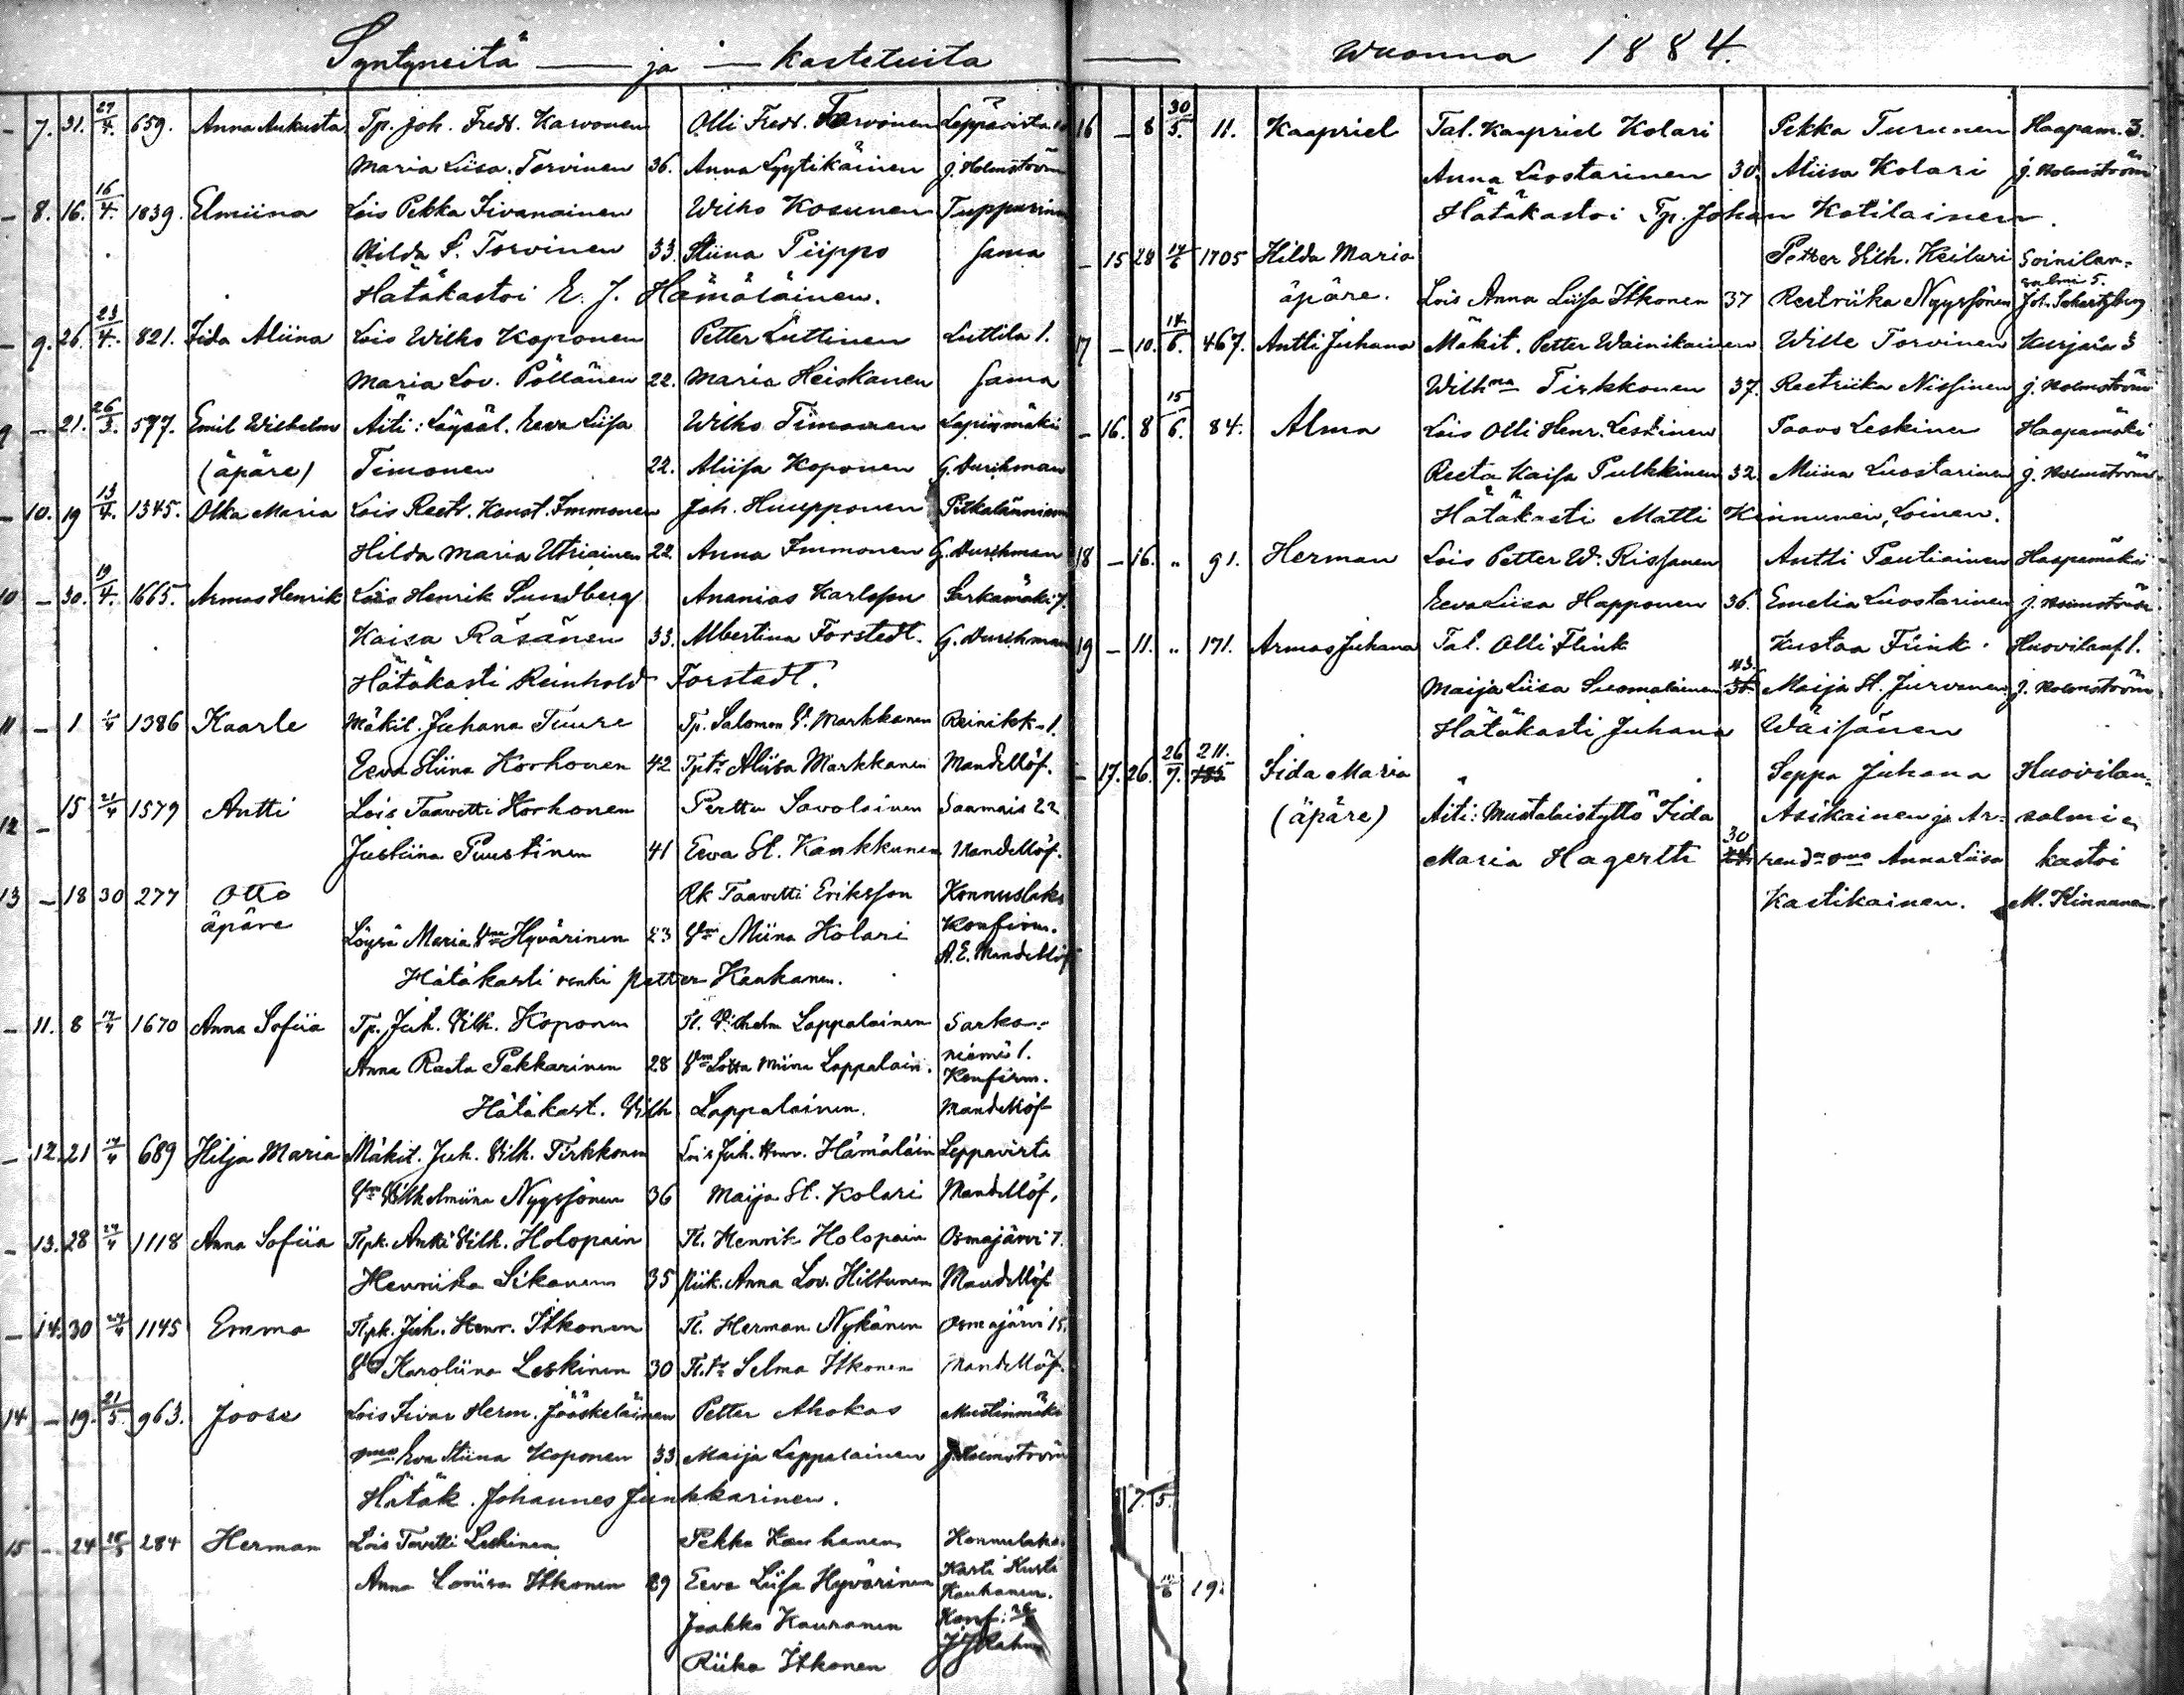 Syntyneitä — ja — kastetuita
— 7. 31. 27/4. 659. Anna Aukusta Tp. Joh. Fredr. Karvonen Olli Fredr. Torvinen Leppävirta
Maria Liisa Torvinen 36. Anna Lyytikäinen J. Holmström
— 8. 16. 16/4. 1039. Elmiina Lois Pekka Iivanainen Wilho Kosunen
Hilda S. Torvinen 33. Stiina Piippo Sama
Hätäkastoi E. J. Hämäläinen.
— 9. 26. 23/4. 821. Iida Aliina Lois Wilho Koponen Petter Luttinen Luttila 1.
Maria Lov. Pöllänen 22. Maria Heiskanen Sama
9 — 21. 26/3. 577. Emil Wilhelm Äiti: Löysäl. Eeva Liisa Wilho Timonen Lapinmäki
(äpäre) Timonen 22. Aliisa Koponen G. Durchman
— 10. 19 13/4. 1345. Olka Maria Lois Reetr. Konst. Immonen Joh. Huupponen
Hilda Maria Utriainen 22. Anna Immonen G. Durchman
10 — 30. 19/4. 1665. Armas Henrik Lois Henrik Sundberg Ananias Karlsson Sarkamäki 7.
Kaisa Räsänen 33. Albertina Forstedt. G. Durchman
Hätäkasti Reinhold Forstedt.
11 — 1 1386 Kaarle Mäkit. Juhana Tuure Tp. Salomon V. Markkanen Reinikk. 1.
Eeva Stiina Korhonen 42 Aliisa Markkanen Mandellöf.
12 — 15 21/4 1579 Antti Lois Taavetti Korhonen Perttu Savolainen Saamais 22
Justiina Puustinen 41 Eeva St. Kankkunen Mandellöf.
13 — 18 30 277 Otto Rk Taavetti Eriksson Konnuslaks
äpäre Löysä Maria Hyvärinen 23 Miina Kolari Konfirm.
A. E. Mandellöf
Hätäkasti renki Petter Kaukanen.
— 11. 8 1670 Anna Sofiia Tp. Juh. Vilh. Koponen Tl. Vilhelm Lappalainen Sarka-
Anna Reeta Pekkarinen 28 Lotta Miina Lappalain. niemi 1.
Konfirm.
Hätäkast. Vilh Lappalainen. Mandellöf
— 12. 21 689 Hilja Maria Mäkit. Juh. Vilh. Tirkkonen Lois Juh. Henr. Hämäläin Leppavirta
Vilhelmiina Nyyssönen 36 Maija St. Kolari Mandellöf.
— 13. 28 1118 Anna Sofiia Tlpk. Antti Vilh. Holopain Tl. Henrik Holopain Osmajärvi 7.
Henrika Sikanen 35 Piik. Anna Lov. Hiltunen Mandellöf
— 14. 30 1145 Emma Tlpk. Juh. Henr. Itkonen Tl. Herman Nykänen Osmajärvi 15.
Karoliina Leskinen 30 Selma Itkonen Mandellöf.
14 — 19. 21/5. 963. Joose Lois Iivar Herm. Jääskeläinen Petter Ahokas Mustinmäki
Eva Stiina Koponen 33. Maija Lappalainen J. Holmström
Hätäk. Johannes Junkkarinen.
15 — 24 284 Herman Lois Tavetti Leskinen Pekka Kauhanen Konnuslaks.
Anna Loviisa Itkonen 29 Eeva Liisa Hyvärinen Kasti Kusti
Kauhanen.
Jaakko Kauranen Konf.
Riika Itkonen
Wuonna 1884.
16 — 8 30/5. 11. Kaapriel Tal. Kaapriel Kolari Pekka Turunen Haapam. 3.
Anna Luostarinen 30. Aliisa Kolari J. Holmström
Hätäkastoi Tp. Johan Kotilainen.
— 15 28 14/6 1705 Hilda Maria Petter Vilh. Keiluri Soinilan-
salmi 5.
äpäre. Lois Anna Liisa Itkonen 37 Reetriika Nyyssönen
17 — 10. 14/6. 467. Antti Juhana Mäkit. Petter Wainikainen Wille Torvinen Kurjala 3
Wilhna Tirkkonen 37. Reetriika Nissinen J. Holmström
— 16. 8 15/6. 84. Alma Lois Olli Henr. Leskinen Paavo Leskinen Haapamäki
Reeta Kaisa Pulkkinen 32. Miina Luostarinen J. Holmström
Hätäkasti Matti Kinnunen, Loinen.
18 — 16. „ 91. Herman Lois Petter W. Rissanen Antti Pautiainen Haapamäki
Eeva Liisa Happonen 36. Emelia Luostarinen J. Holmström
19 — 11. „ 171. Armas Juhana Tal. Olli Flink Kustaa Flink. Huovilans 1.
Maija Liisa Suomalainen 43. Maija St. Jurvanen J. Holmström
Hätäkasti Juhana Wäisänen
— 17. 26. 26/7. 211. Iida Maria Seppä Juhana Huovilan-
(äpäre) Äiti: Mustalaistyttö Iida Asikainen ja Ar- salmi
Maria Hagertti 30 Anna Liisa kastoi
Kastikainen. M. Kinnunen.
7. 5.
19.